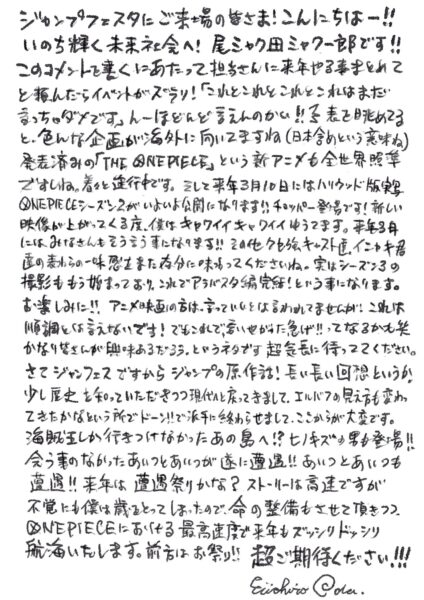 ジャンプフェスタにご来場の皆さま!こんにちはー!!
いのち輝く未来社会へ! 尾ミャク田ミャクー郎です!!
このコメントを書くにあたって担当さんに来年やる事まとめて
と頼んだらイベントがズラリ!「これとこれとこれとこれはまだ
言っちゃダメです」んーほどんど言えんのかい!! 表を眺めてる
と、色んな企画が海外に向いてますね(日本含めという意味ね)
発表済みの「THE ONE PIECE」という新アニメも全世界照準
ですしね。着々と進行中です。そして来年3月10日にはハリウッド版実写
ONE PIECEシーズン2がいよいよ公開になります!!チョッパー登場です!新しい
映像が上がってくる度、僕はキャワイイキャワイイゆうてます。来年3月
には、みなさんもそう言う事になります!!その他クセ強キャスト達、イニャキ君
達の麦わらの一味思うまま存分に味わってくださいね。実はシーズン3の
撮影ももう始まっており、これでアラバスタ編完結!という事になります。
お楽しみに!! アニメ映画の方は、言っていいとは言われてませんが、これは
順調とは言えないです!でもこれで、若いせがれた急げ!!ってなるかも笑
かなり皆さんが興味あるだろう、というネタです 超気長に待っててください。
さてジャンフェスですからジャンプの原作話!長い長い回想というか
少し歴史を知っていただきつつ現代へと戻ってきまして、エルバフの見え方も変わっ
てきたかなという所でドーン!!で派手に終わらせまして、ここからが大変です。
海賊王しか行きつけなかったあの島へ!?ヒノキズの男も登場!!
会う事のなかったあいつとあいつが遂に遭遇!!あいつとあいつも
遭遇!!来年は遭遇祭りかな?ストーリーは高速ですが
不覚にも僕は歳をとってしまったので、命の整備もさせて頂きつつ、
ONE PIECEにおける最高速度で来年もズッシリドッシリ
航海いたします。前方はお祭り!! 超ご期待ください!!!
Eiichiro Oda.